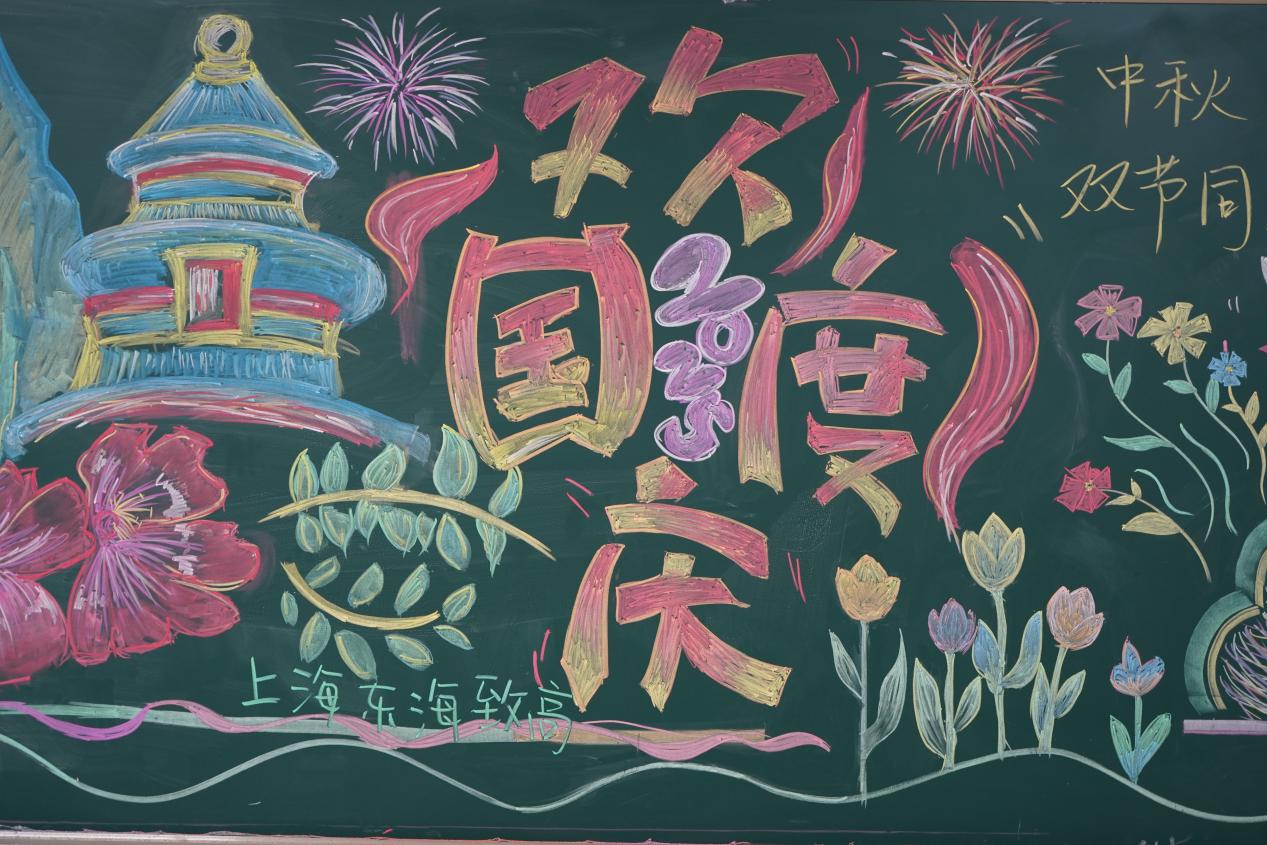 欢度
国庆
2025
中秋
双节同
上海东海致高